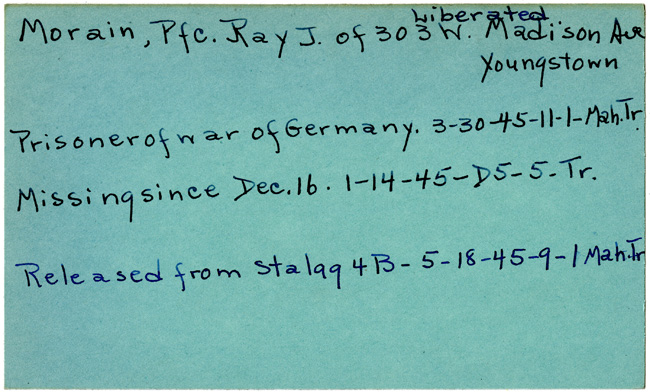 Liberated
Morain, Pfc. Ray J. of 303 W. Madison Ave
Youngstown
Prisoner of war of Germany. 3-30-45-11-1-Mah.Tr.
Missing since Dec. 16. 1-14-45-D5-5-Tr.
Released from Stalag 4B-5-18-45-9-1 Mah.Tr